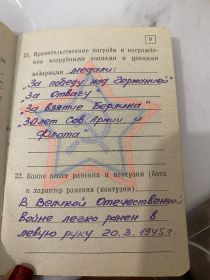 9
21. Правительственные награды и награжде-
ния нагрудными знаками и ценными
подарками медали:
"За победу над Германией"
"За Отвагу"
"За взятие Берлина"
"30 лет Сов. Армии и
Флота"
22. Какие имеет ранения и контузии (дата
и характер ранения (контузии)
В Великой Отечественной
Войне легко ранен в
левую руку 20.3.1945г.